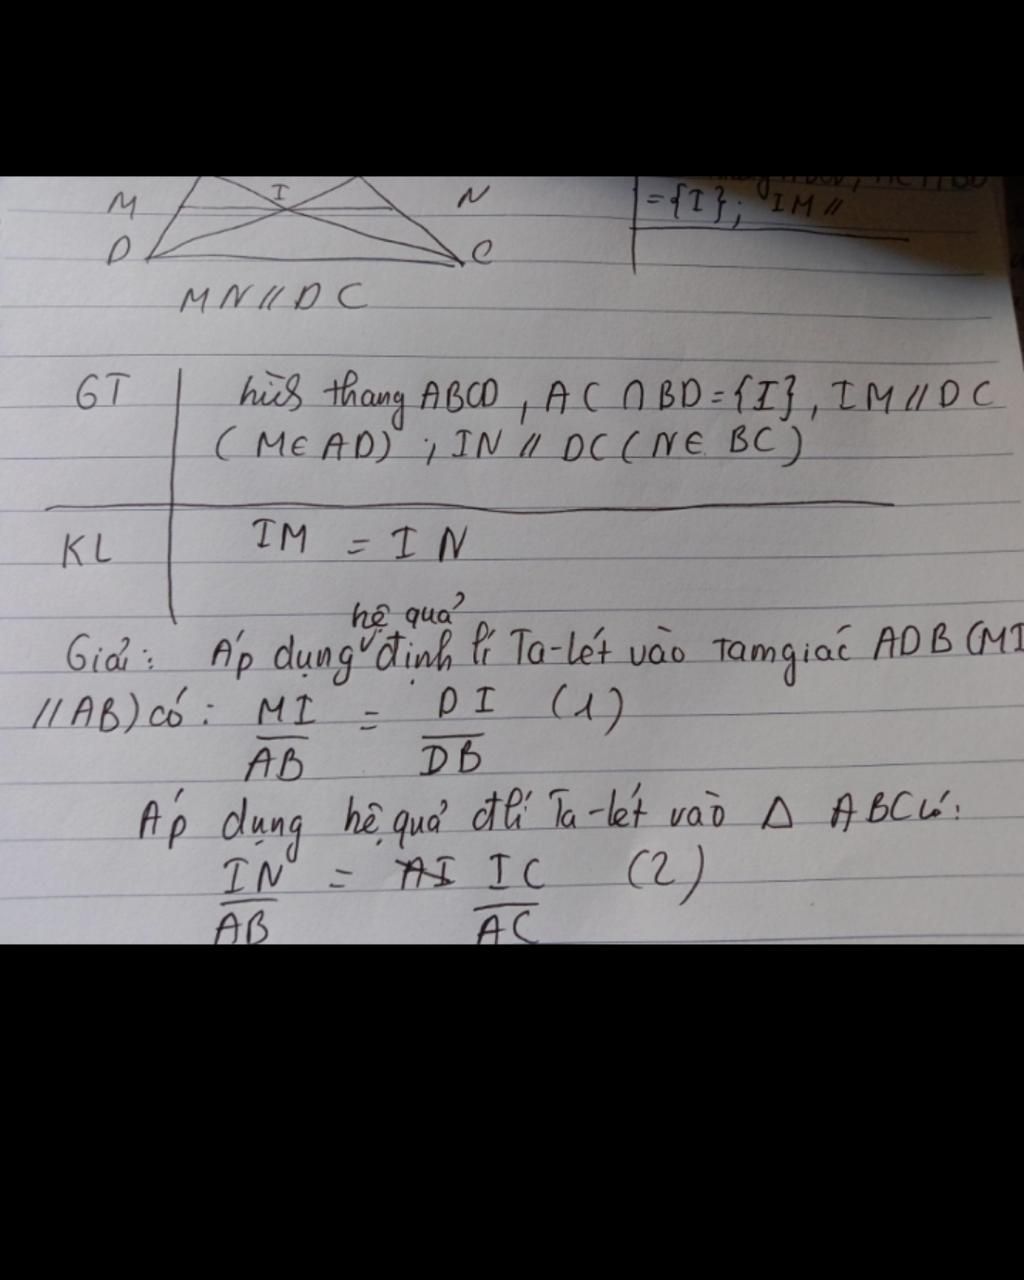 M I N
={I}; IM //
D C
MN // DC
GT hình thang ABCD, AC ∩ BD = {I}, IM // DC
(M ∈ AD); IN // DC (N ∈ BC)
KL IM = IN
hệ quả
Giải: Áp dụng định lí Ta-lét vào Tam giác ADB (MI
// AB) có: MI/AB = DI/DB (1)
Áp dụng hệ quả đlí Ta-lét vào Δ ABC có:
IN/AB = IC/AC (2)